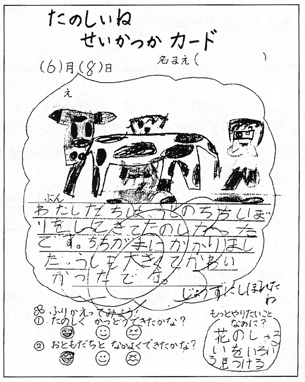 たのしいね
せいかつか カード
(6)月(8)日
名まえ( )
え
ぶん
わたしたちは、うしのちちしぼ
りをしにきてたのしかった
です。ちちが手にかかりまし
た。うしも大きくてかわい
かったです。
じょうずにしぼれた
わ
ふりかえってみよう
① たのしく かつどうできたかな?
② おともだちと なかよくできたかな?
もっとやりたいこと
なあに?
花のし
いをいろい
ろ見つける